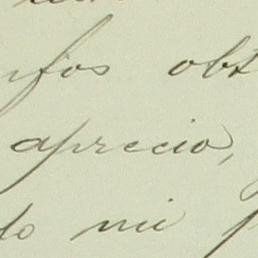 nfos obt
aprecio,
do mi p